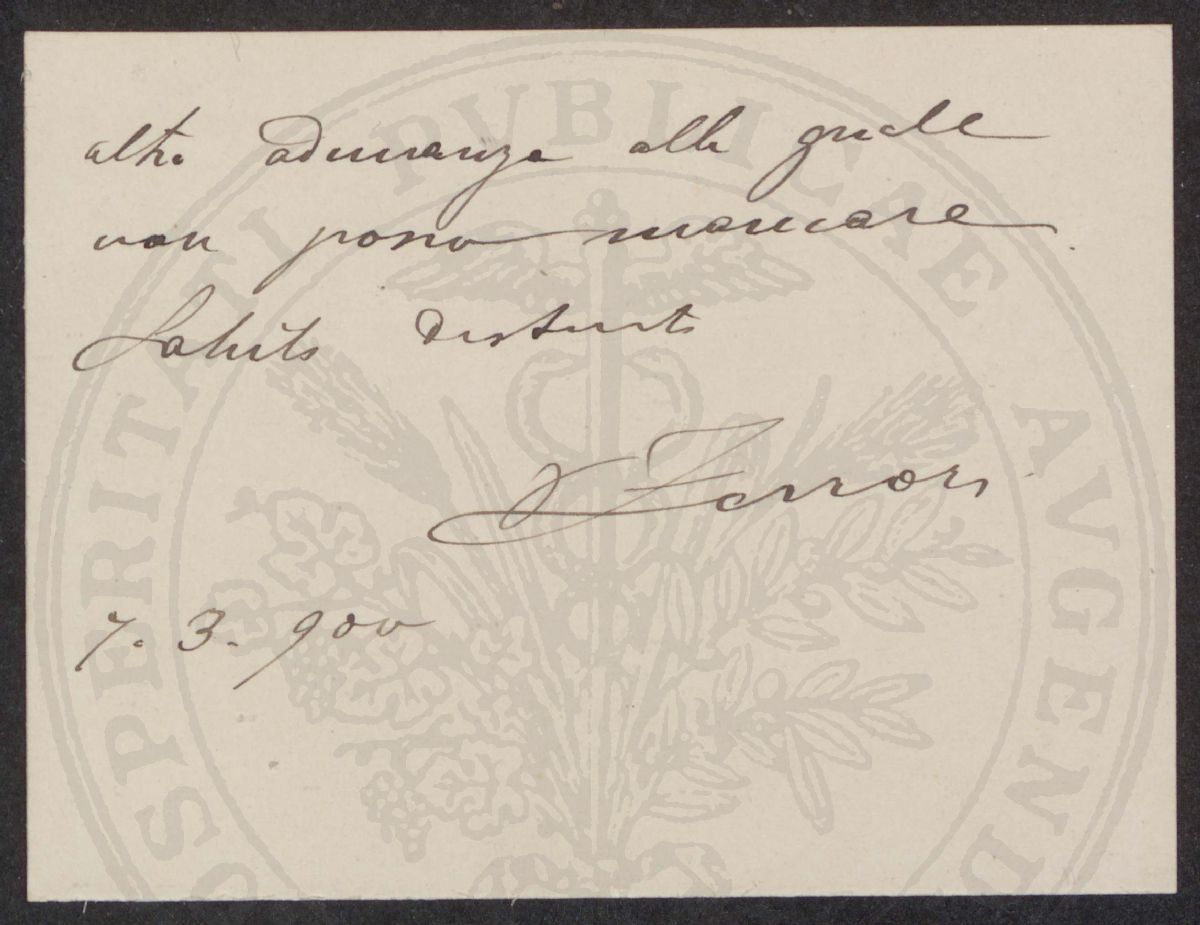 altra adunanza alla quale
non posso mancare.
Saluti distinti
Ferrari
7. 3. 900
PROSPERITATI PVBLICAE AVGENDAE